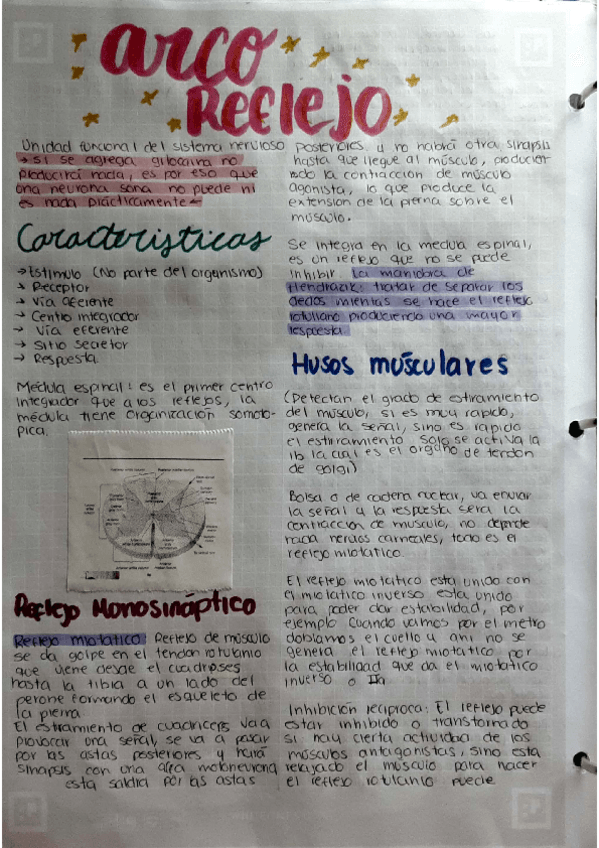 arco
Reflejo
Unidad funcional del sistema nervioso
→ si se agrega glioaina no
producirá nada, es por eso que
una neurona sana no puede ni
es nada prácticamente ←
Caracteristicas
→ Estimulo (No parte del organismo)
→ Receptor
→ Vía aferente
→ Centro integrador
→ Vía eferente
→ Sitio secretor
→ Respuesta
Medula espinal: es el primer centro
integrador que a los reflejos, la
médula tiene organización somoto-
pica.
Reflejo Monosináptico
Reflejo miotatico: Reflejo de músculo
se da golpe en el tendon rotuliano
que viene desde el cuadriceps
hasta la tibia a un lado del
perone formando el esqueleto de
la pierna
El estiramiento de cuadriceps va a
provocar una señal, se va a pasar
por las astas posteriores y hará
sinapsis con una motoneurona
esta saldrá por las astas
posteriores y no habrá otra sinapsis
hasta que llegue al músculo, producien
ndo la contracción de músculo
agonista, lo que produce la
extension de la pierna sobre el
músculo.
Se integra en la medula espinal,
es un reflejo que no se puede
inhibir. La maniobra de
Hendrazik: tratar de separar los
dedos mientas se hace el reflejo
rotuliano produciendo una mayor
respuesta.
Husos músculares
(Detectan el grado de estiramiento
del músculo, si es muy rapido,
genera la señal, sino es rapido
el estiramiento solo se activa la
Ib la cual es el organo de tendon
de golgi)
Bolsa o de cadena nuclear, va enviar
la señal y la respuesta sera la
contracción de musculo, no depende
nada nervios carneales, todo es el
reflejo miotatico.
El reflejo miotatico esta unido con
el miotatico inverso esta unido
para poder dar estabilidad, por
ejemplo cuando vamos por el metro
doblamos el cuello y ahi no se
genera el reflejo miotatico por
la estabilidad que da el miotatico
inverso o IIa
Inhibición reciproca: El reflejo puede
estar inhibido o transtornado
si hay cierta actividad de los
músculos antagonistas, sino esta
relajado el músculo para hacer
el reflejo rotuliano puede